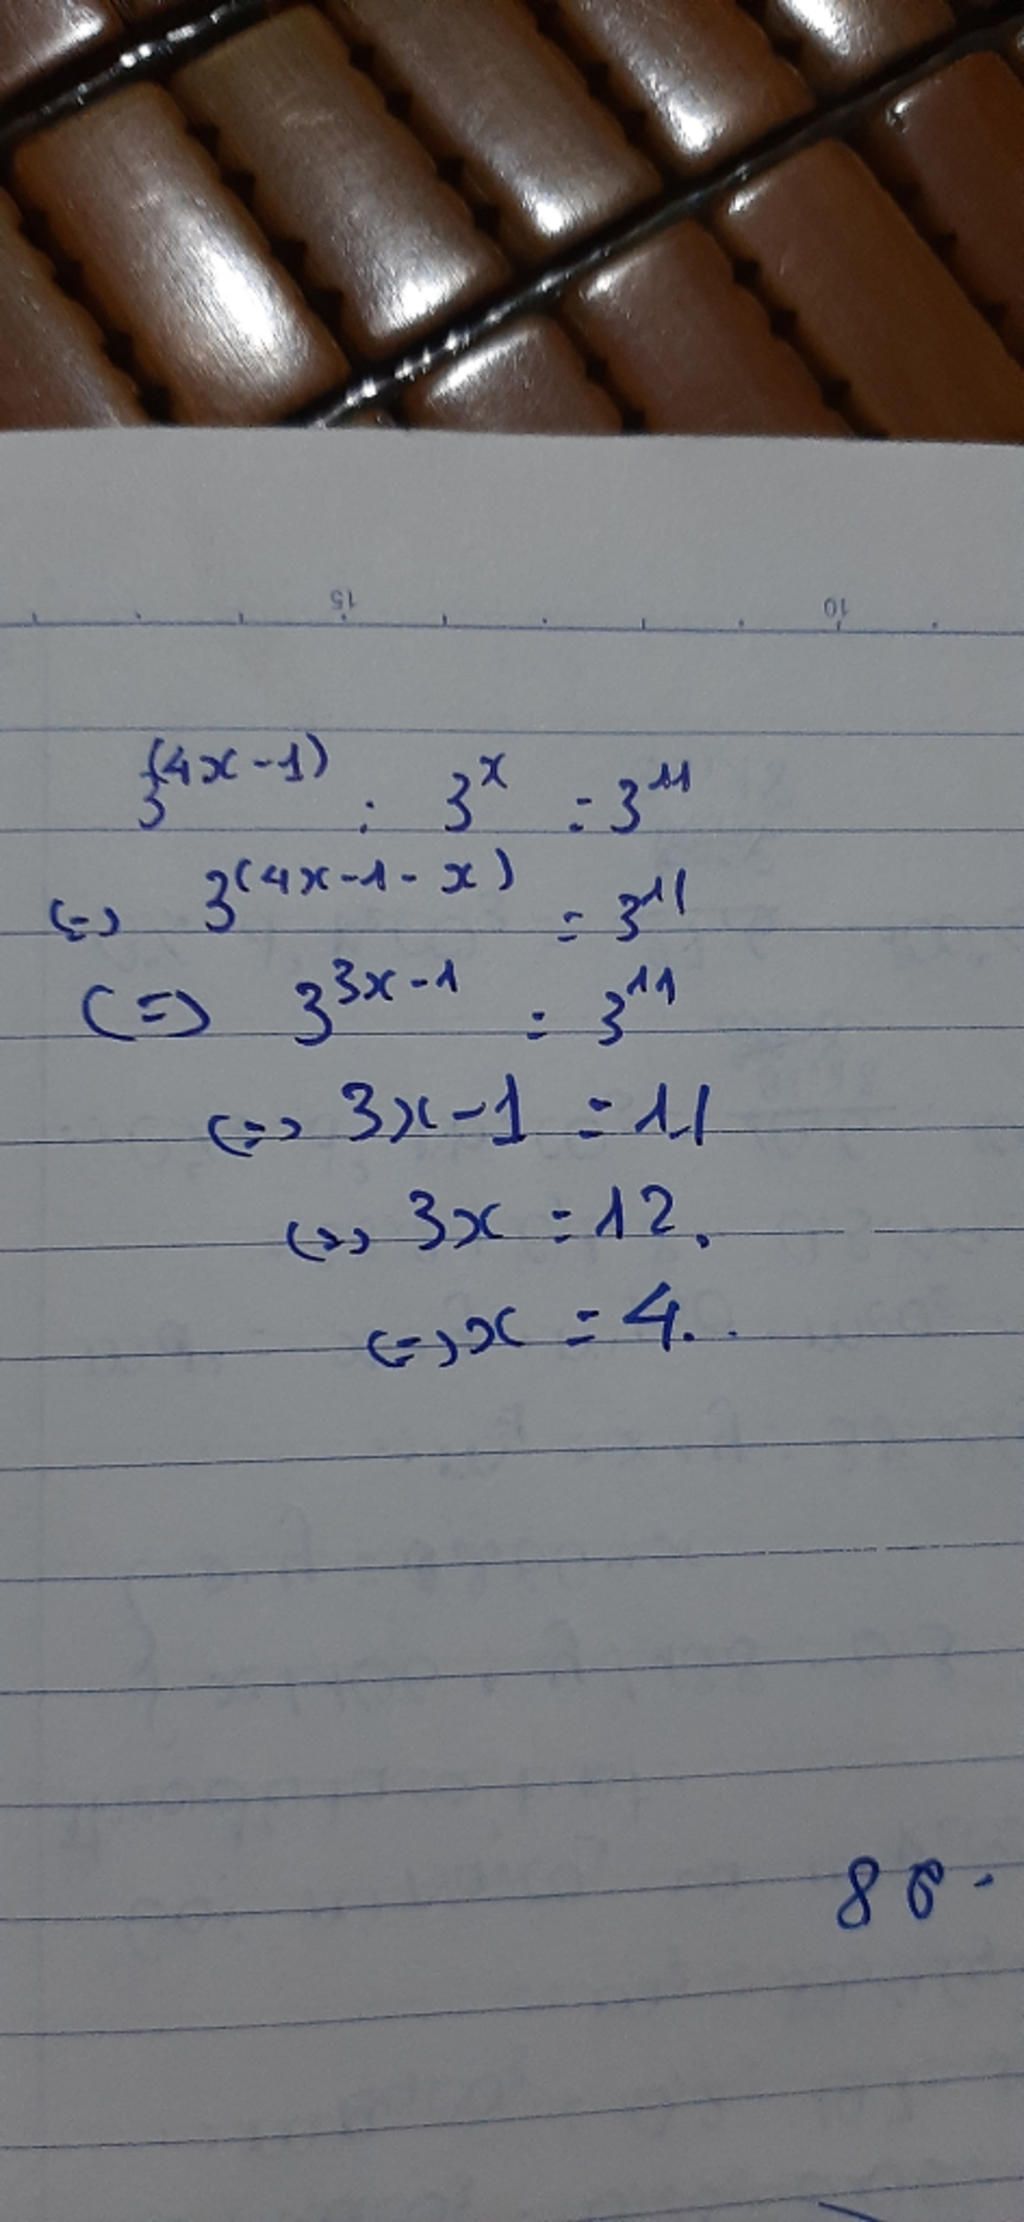 15 10
3^(4x-1) : 3^x = 3^11
<=> 3^(4x-1-x) = 3^11
<=> 3^3x-1 = 3^11
<=> 3x-1 = 11
<=> 3x = 12.
<=> x = 4..
86.